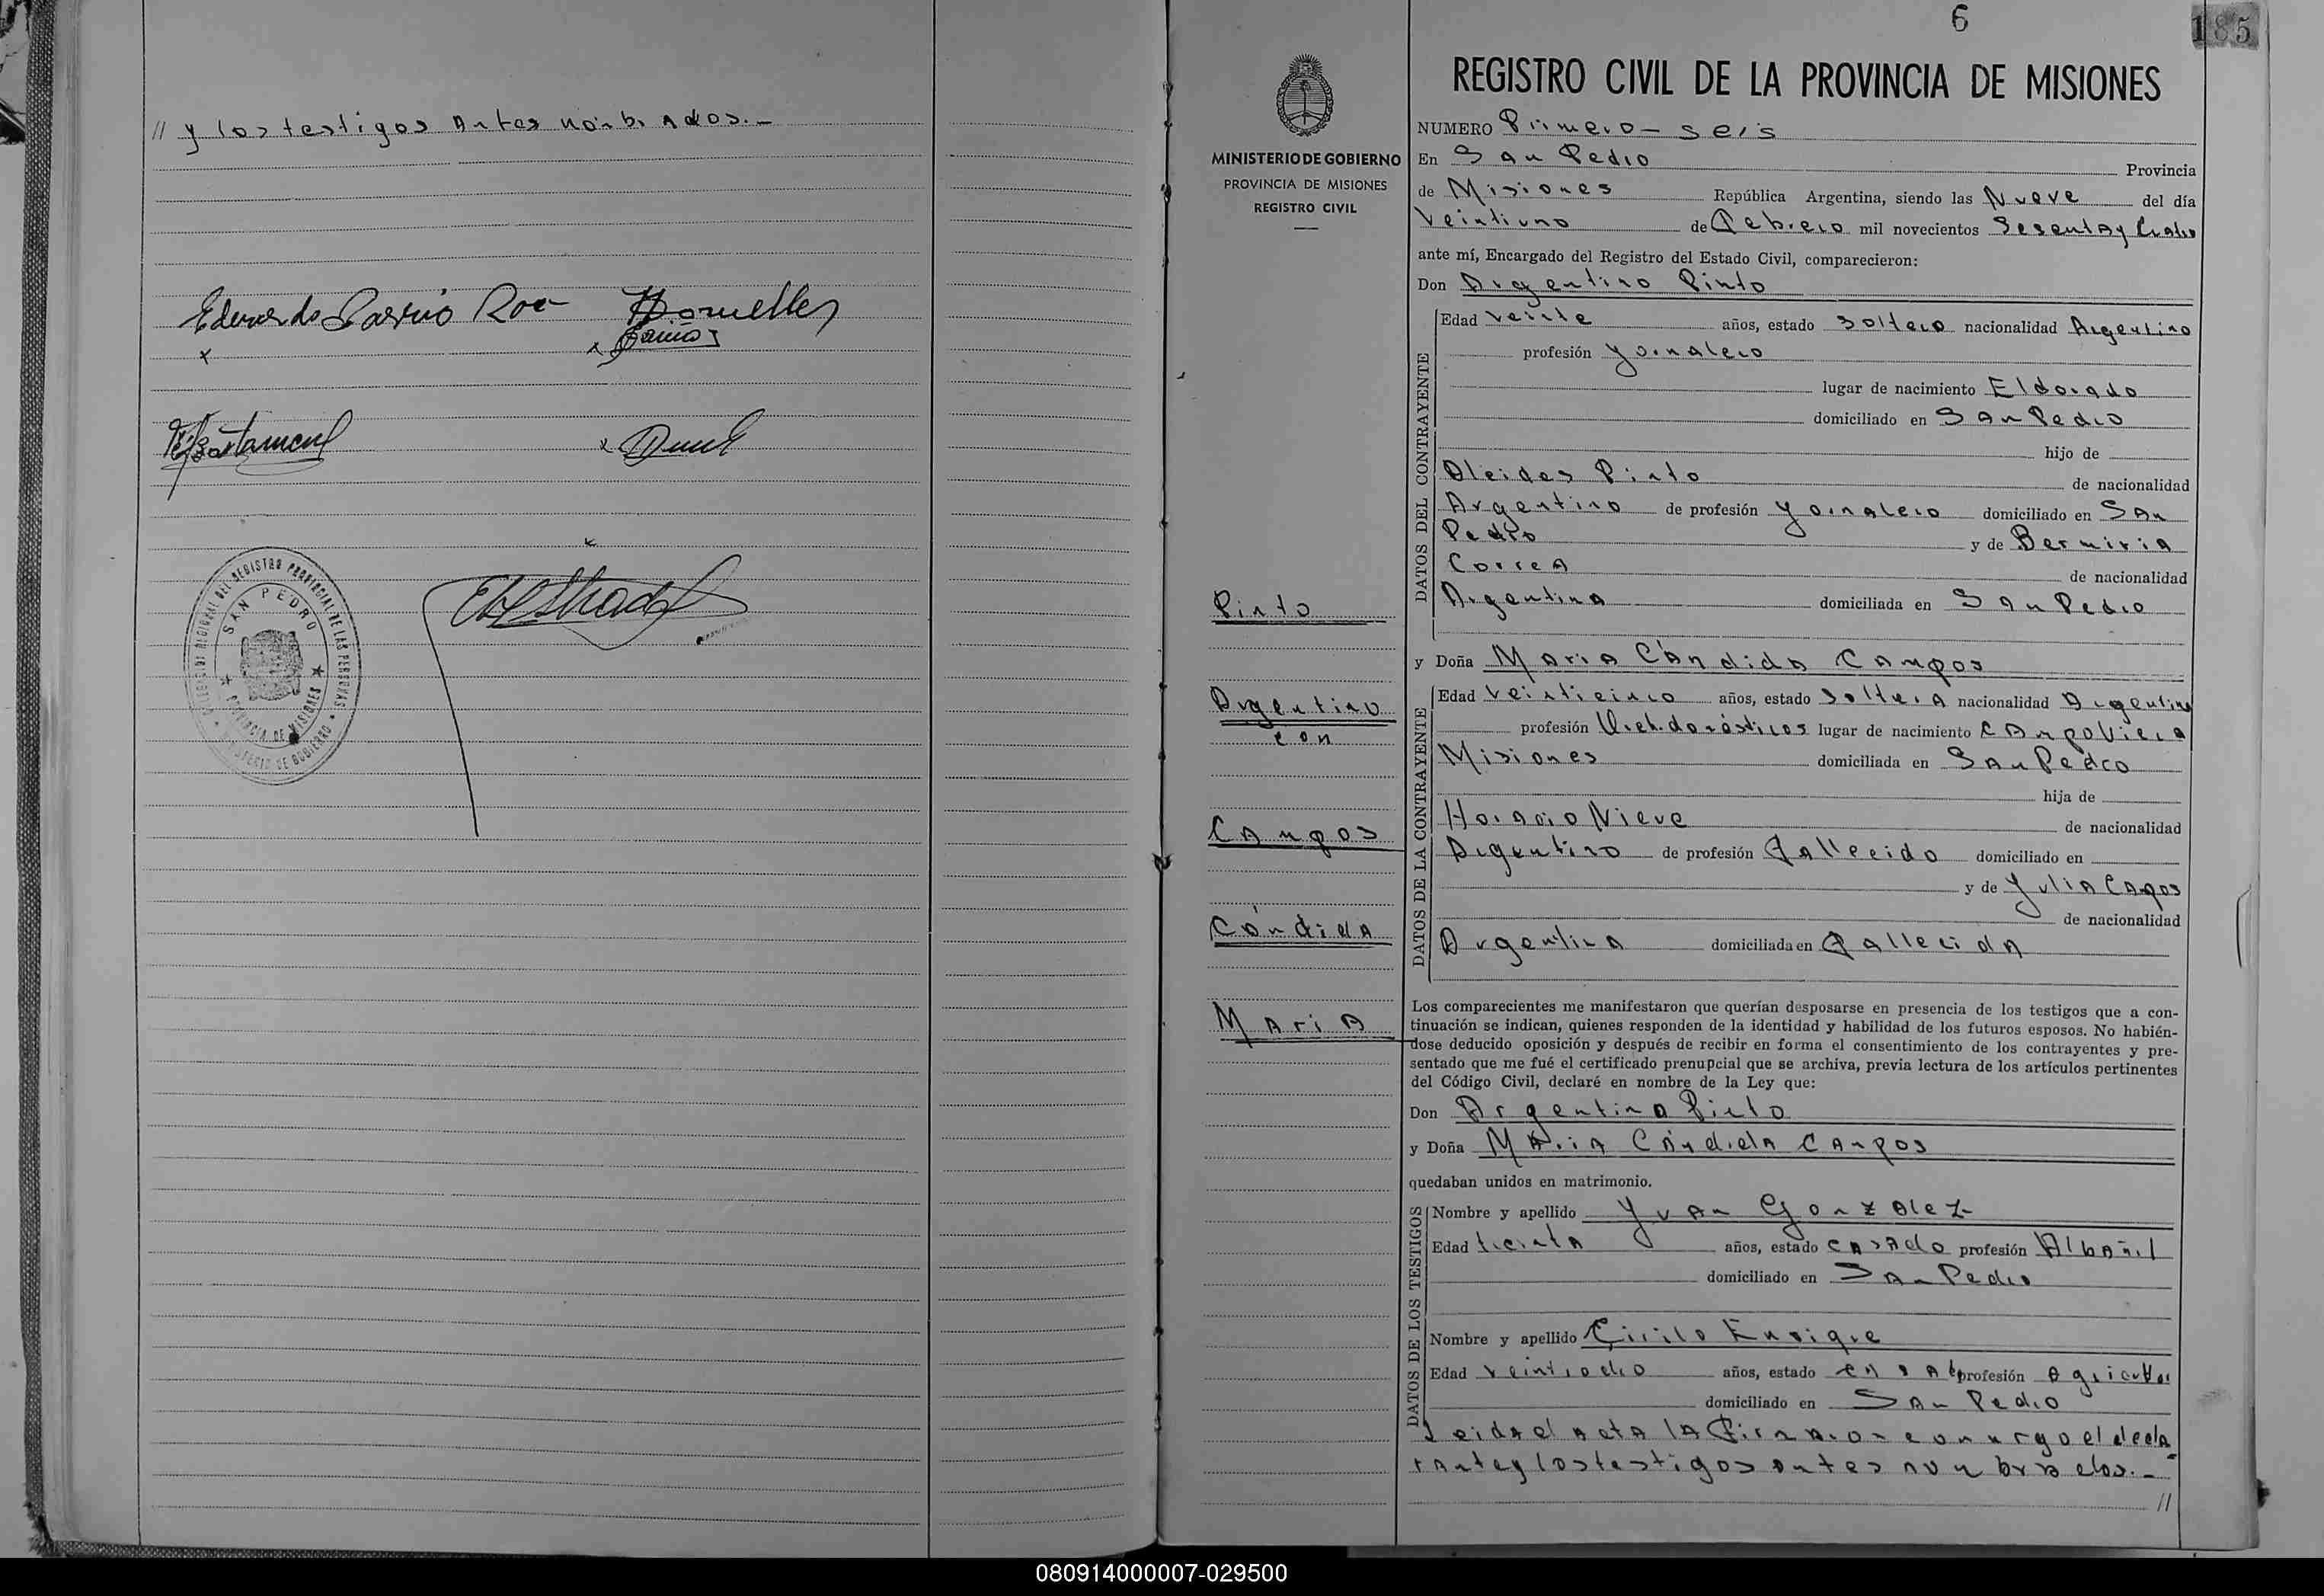 // y los testigos Antes nombrados.-
Eduardo
SAN PEDRO
PROVINCIA DE MISIONES
MINISTERIO DE GOBIERNO
6
185
REGISTRO CIVIL DE LA PROVINCIA DE MISIONES
MINISTERIO DE GOBIERNO
PROVINCIA DE MISIONES
REGISTRO CIVIL
Pinto
Argentino
con
Campos
Cándida
Maria
NUMERO Primero - seis
En San Pedro Provincia
de Misiones República Argentina, siendo las Nueve del día
Veintiuno de Febrero mil novecientos Sesenta y Cuatro
ante mí, Encargado del Registro del Estado Civil, comparecieron:
Don Argentino Pinto
DATOS DEL CONTRAYENTE
Edad veinte años, estado soltero nacionalidad Argentino
profesión Yornalero
lugar de nacimiento Eldorado
domiciliado en San Pedro
hijo de
Alcides Pinto de nacionalidad
Argentino de profesión Yornalero domiciliado en San
Pedro y de
Correa de nacionalidad
Argentina domiciliada en San Pedro
y Doña Maria Cándida Campos
DATOS DE LA CONTRAYENTE
Edad veinticinco años, estado soltera nacionalidad Argentina
profesión Queh. domésticos lugar de nacimiento Campo Viera
Misiones domiciliada en San Pedro
hija de
Horacio Nieve de nacionalidad
Argentino de profesión Fallecido domiciliado en
y de Yulia Campos
de nacionalidad
Argentina domiciliada en Fallecida
Los comparecientes me manifestaron que querían desposarse en presencia de los testigos que a con-
tinuación se indican, quienes responden de la identidad y habilidad de los futuros esposos. No habién-
dose deducido oposición y después de recibir en forma el consentimiento de los contrayentes y pre-
sentado que me fué el certificado prenupcial que se archiva, previa lectura de los artículos pertinentes
del Código Civil, declaré en nombre de la Ley que:
Don Argentino Pinto
y Doña Maria Cándida Campos
quedaban unidos en matrimonio.
DATOS DE LOS TESTIGOS
Nombre y apellido Yuan Gonzalez
Edad treinta años, estado casado profesión Albañil
domiciliado en San Pedro
Nombre y apellido Cirilo Enrique
Edad años, estado profesión Agricultor
domiciliado en San Pedro
Leida el acta la Firmaron conmigo el decla-
rante y los testigos antes nombrados.-
//
080914000007-029500